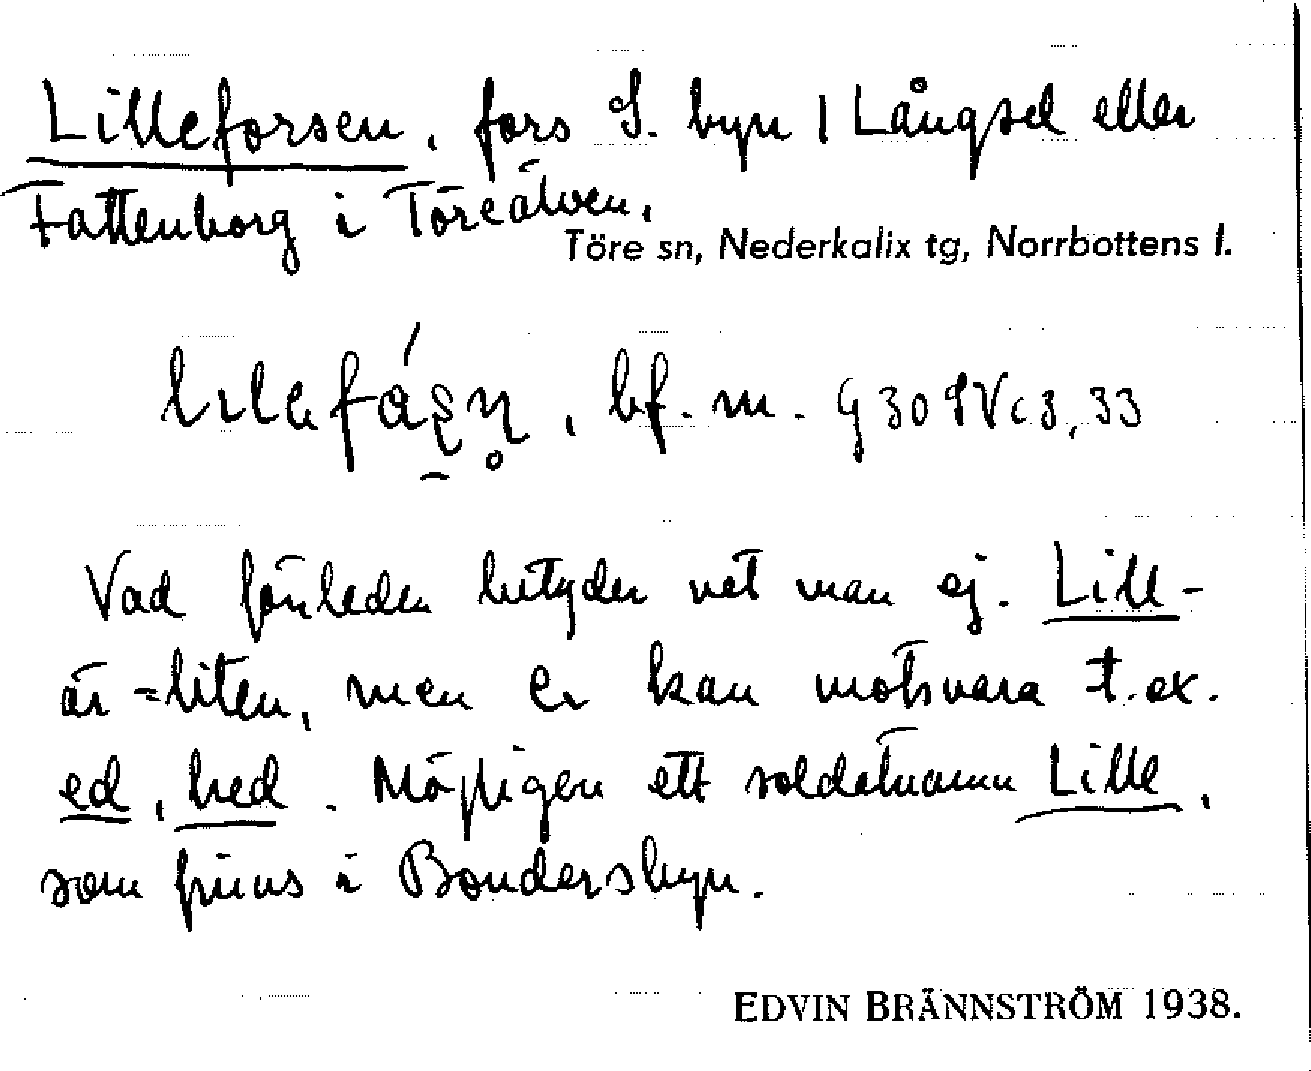 Lilleforsen, fors S. byn 1 Långsel eller
Fattenborg i Töreälven.
Töre sn, Nederkalix tg, Norrbottens l.
bf. m. G 30 SVc 3, 33
Vad förleden betyder vet man ej. Lill-
är = liten, men kan motsvara t.ex.
ed, hed. Möjligen ett soldatnamn Lille,
som finns i Bondersbyn.
EDVIN BRÄNNSTRÖM 1938.